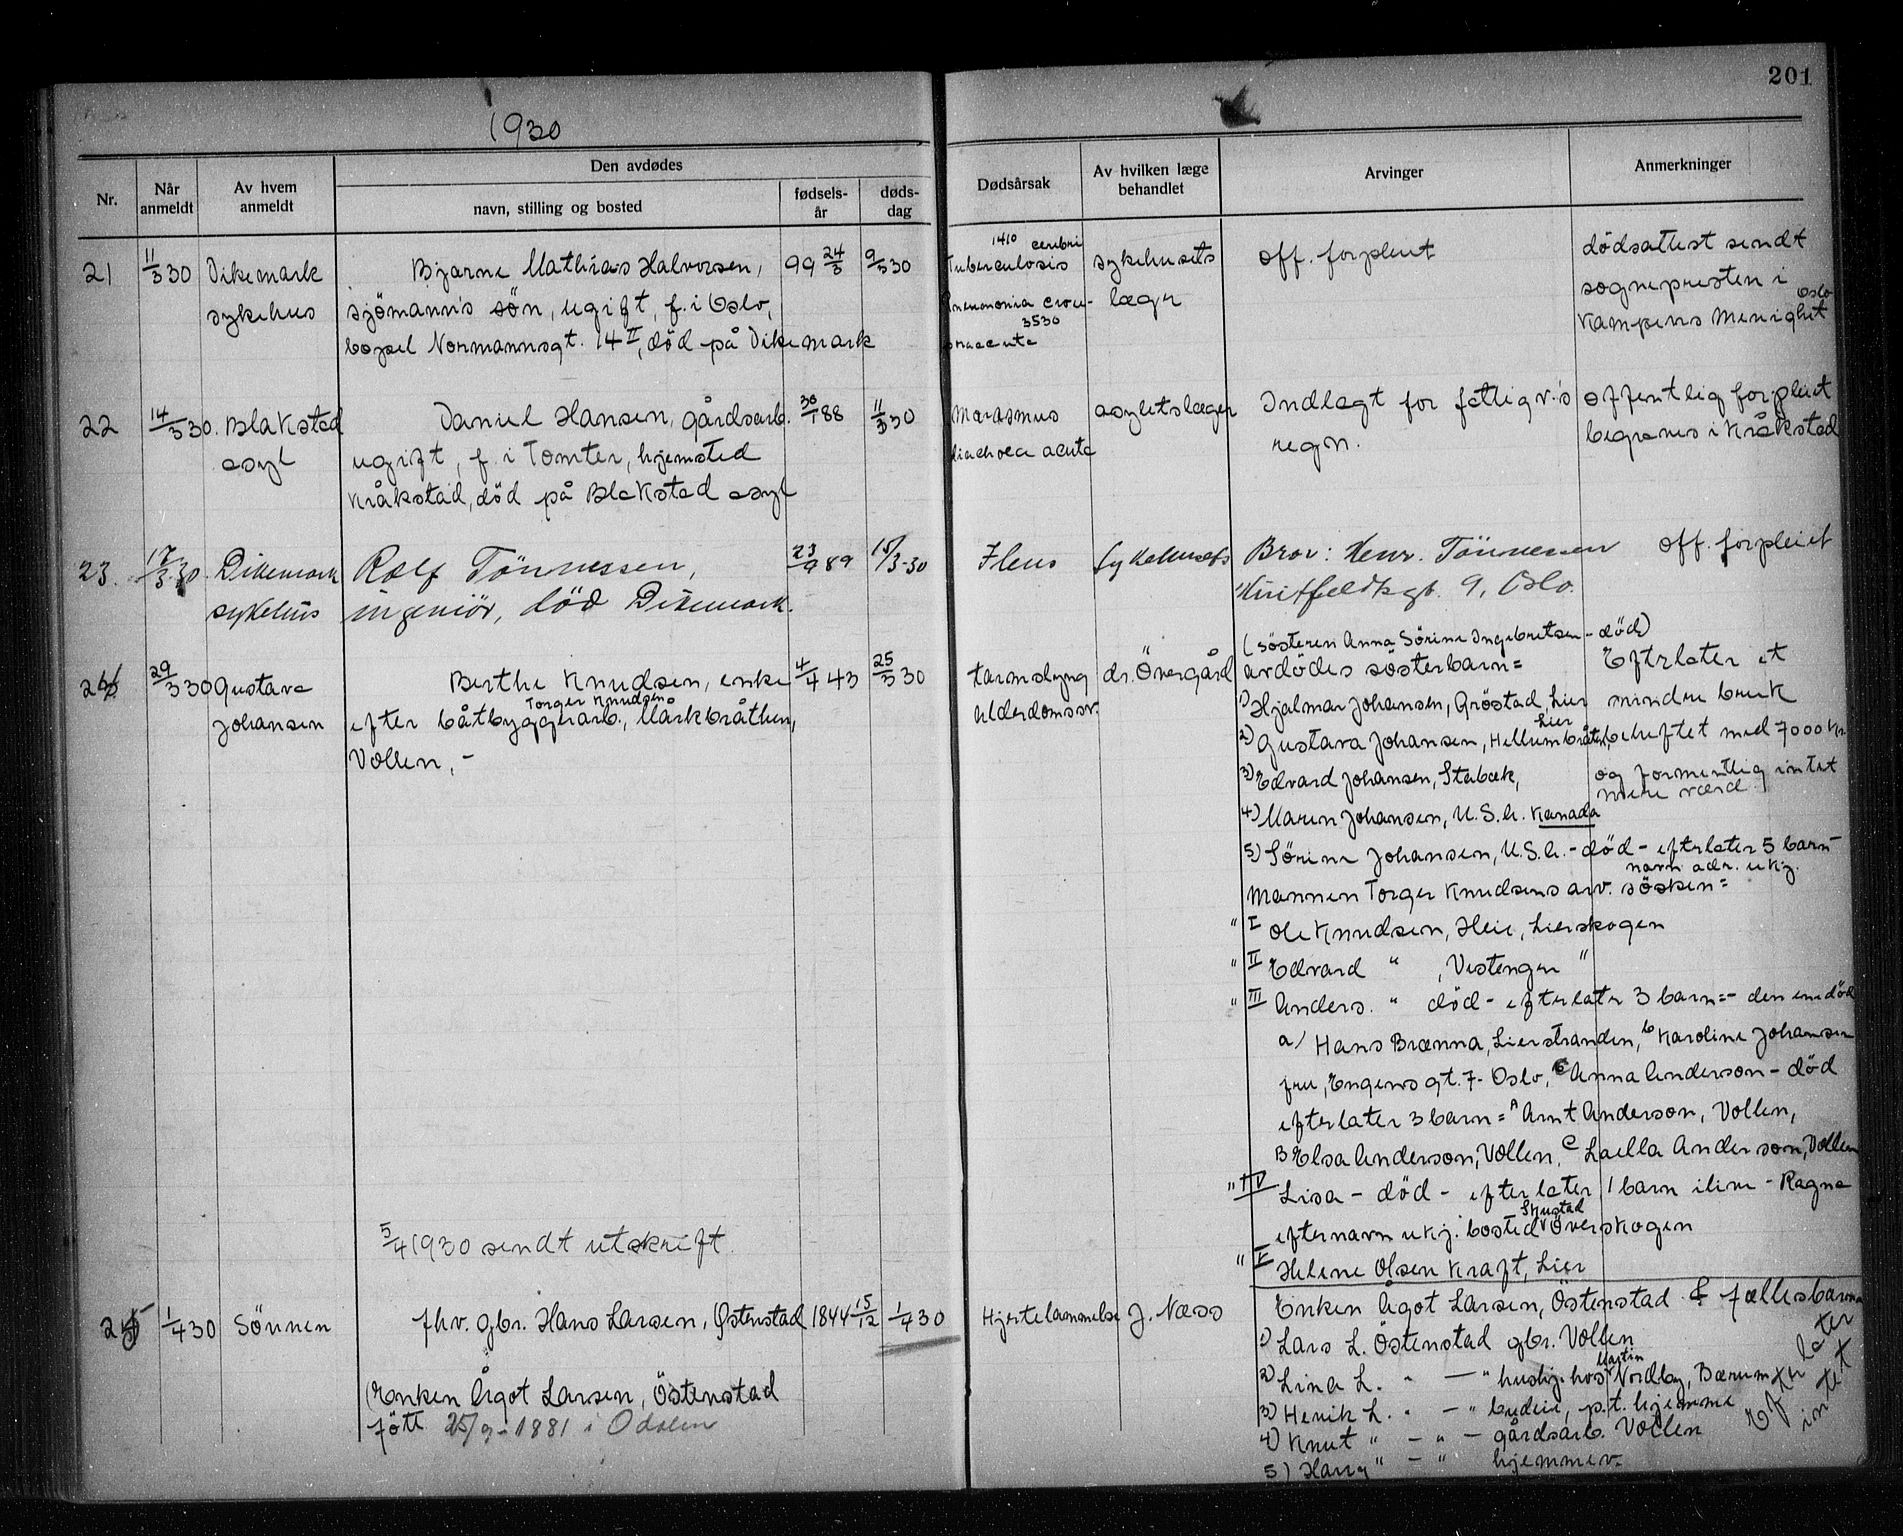 201
1930
Nr.
Når anmeldt
Av hvem anmeldt
Den avdødes
navn, stilling og bosted
fødsels-år
døds-dag
Dødsårsak
Av hvilken læge behandlet
Arvinger
Anmerkninger
21 11/3 30 Dikemark sykehus
Bjarne Mathias Halvorsen,
sjömanns sön, ugift, f. i Oslo,
bopel Normannsgt. 14 II, död på Dikemark
99 24/3 9/3 30
1410 cerebri
Tuberculosis
Pneumonia crou-
3530
sykehusets
læge
off. forpleiet
dödsattest sendt
sognepresten i
Oslo
Kampens Menighet
22 14/3 30. Blakstad asyl
Daniel Hansen, gårdsarb.
ugift, f. i Tomter, hjemsted
Kråkstad, död på Blakstad asyl
30/1 88 11/3 30
Marasmus
diarhoea acuta
asylets læger
Indlagt for fattigv.'s
regn.
offentlig forpleiet
begraves i Kråkstad
23. 17/3 30. Dikemark sykehus
Rolf Tönnessen,
ingeniör, död Dikemark.
23/9 89 15/3-30
Ileus
Sykehusets
Bror: Henr. Tönnessen
Huitfeldtsgt. 9, Oslo.
off. forpleiet
24 29/3 30 Gustava Johansen
Berthe Knudsen, enke
Torger Knudsen
efter båtbyggerarb., Mårkbråthen,
Vollen, -
4/4 43 25/3 30
tarmslyng
Alderdomssv.
dr. Övergård
(søsteren Anna Sörine Ingebretsen - död)
avdödes sösterbarn =
1) Hjalmar Johansen, Gröstad, Lier
Lier
2) Gustava Johansen, Hellumbråten,
3) Edvard Johansen, Stabæk,
4) Maren Johansen, U.S.A. Kanada
5) Sörine Johansen, U.S.A. - död - efterlater 5 barn -
navn adr. ukj.
Efterlater et
mindre bruk
beheftet med 7000 kr.
og formentlig intet
mere værd
Mannen Torger Knudsens arv. sösken =
" I Ole Knudsen, Heie, Lierskogen
" II Edvard " , Vestengen "
" III Anders. " död - efterlater 3 barn = - den ene död
a) Hans Brænna, Lierstranden, b Karoline Johansen
fru, Engens gt. 7 - Oslo, C Anna Anderson - död
efterlater 3 barn = A Arnt Anderson, Vollen,
B Elsa Anderson, Vollen, C Laella Anderson, Vollen
" IV Lisa - död - efterlater 1 barn i live - Ragna
Skustad
efternavn ukj. bosted Överskogen
" V Helene Olsen Kraft, Lier
5/4 1930 sendt utskrift.
25 1/4 30 Sönnen
fhv. gbr. Hans Larsen, Østenstad
1844 15/12 1/4 30
(Enken Ågot Larsen, Östenstad
fött 25/9-1881 i Odalen
Hjertelammelse
J. Næss
Enken Ågot Larsen, Östenstad & fællesbarna
1) Lars L. Östenstad gbr. Vollen
Martin
2) Lina L. " — " hushj. hos Nordby, Bærum
3) Henrik L. " — " budeie, p.t. hjemme
4) Knut " — " — gårdsarb. Vollen
5) Hang " — " hjemmev.
Efterlater
intet